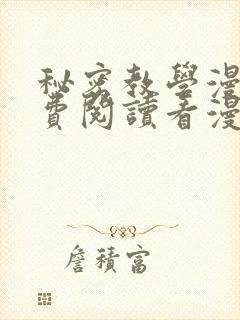 秘密教學漫
費閱讀看漫
詹積富